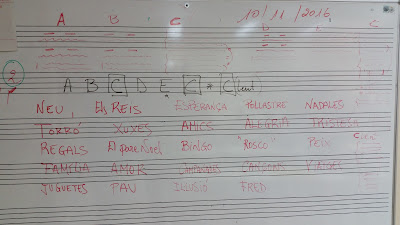 A B C 10/11/2016
D E C
2 A B C D E C * C (lent)
NEU, ELS REIS ESPERANÇA POLLASTRE NADALES
TORRÓ XUXES AMICS ALEGRIA TRISTESA
REGALS El pare Noel BINGO "ROSCO" PEIX
FAMÍLIA AMOR CANÇONS VIATGES
JUGUETES PAU IL·LUSIÓ FRED